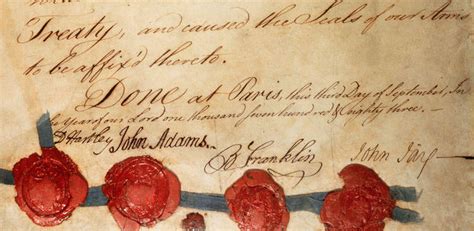 Treaty, and caused the Seals of our Arms
to be affix'd thereto.
Done at Paris, this third Day of September, In
Year of our Lord one thousand seven hundred & eighty three.
D Hartley John Adams B Franklin John Jay